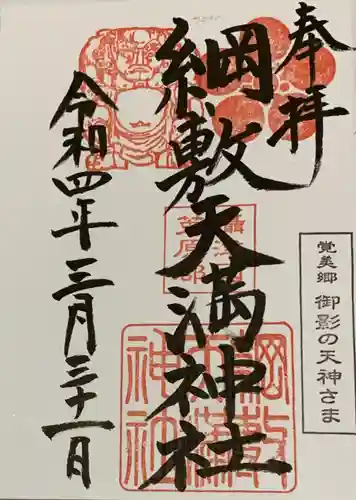 奉拝
綱敷天満神社
令和四年三月三十一月
覚美郷 御影の天神さま
綱敷
天満
神社